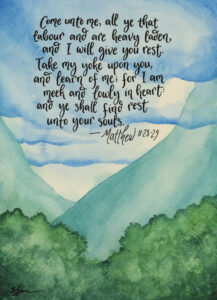 Come unto me, all ye that
labour and are heavy laden,
and I will give you rest.
Take my yoke upon you,
and learn of me; for I am
meek and lowly in heart:
and ye shall find rest
unto your souls.
— Matthew 11:28-29